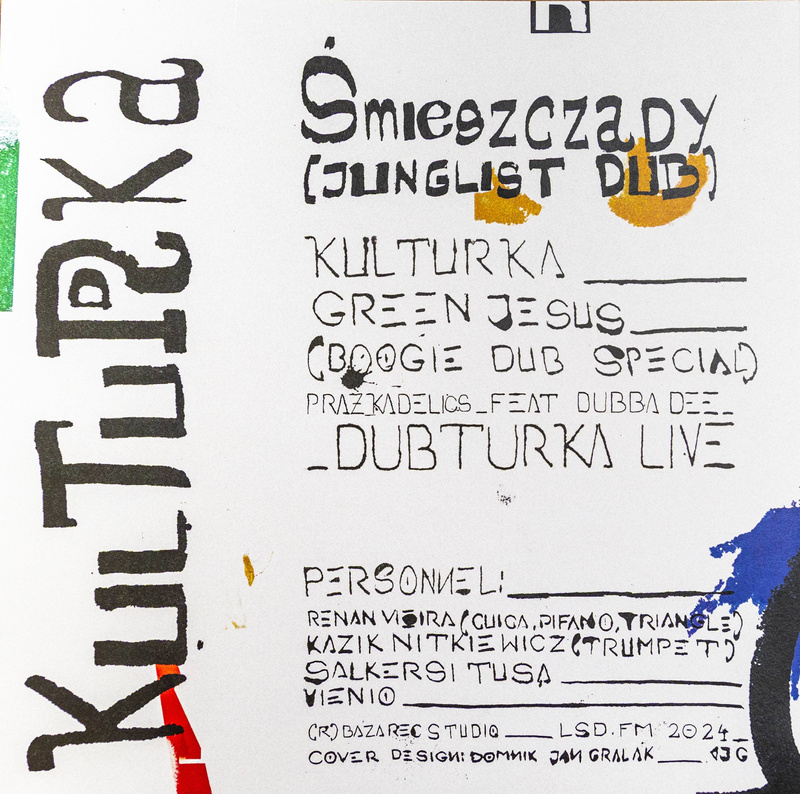 KulTuRKa
Śmieszczaɒy
(JUNGLIST DUB)
KULTURKA
GREEN JESUS
(BOOGIE DUB SPECIAL)
PRAŻKADELICS_FEAT DUBBA DEE_
_DUBTURKA LIVE
PERSONNEL:
RENAN VIEIRA (CUICA, PIFANO, TRIANGLE)
KAZIK NITKIEWICZ (TRUMPET)
SALKERSI TUSA
VIENIO
(R) BAZAREC STUDIO ____ LSD.FM 2024_
COVER DESIGN: DOMNIK JAN GRALAK ___ DJG